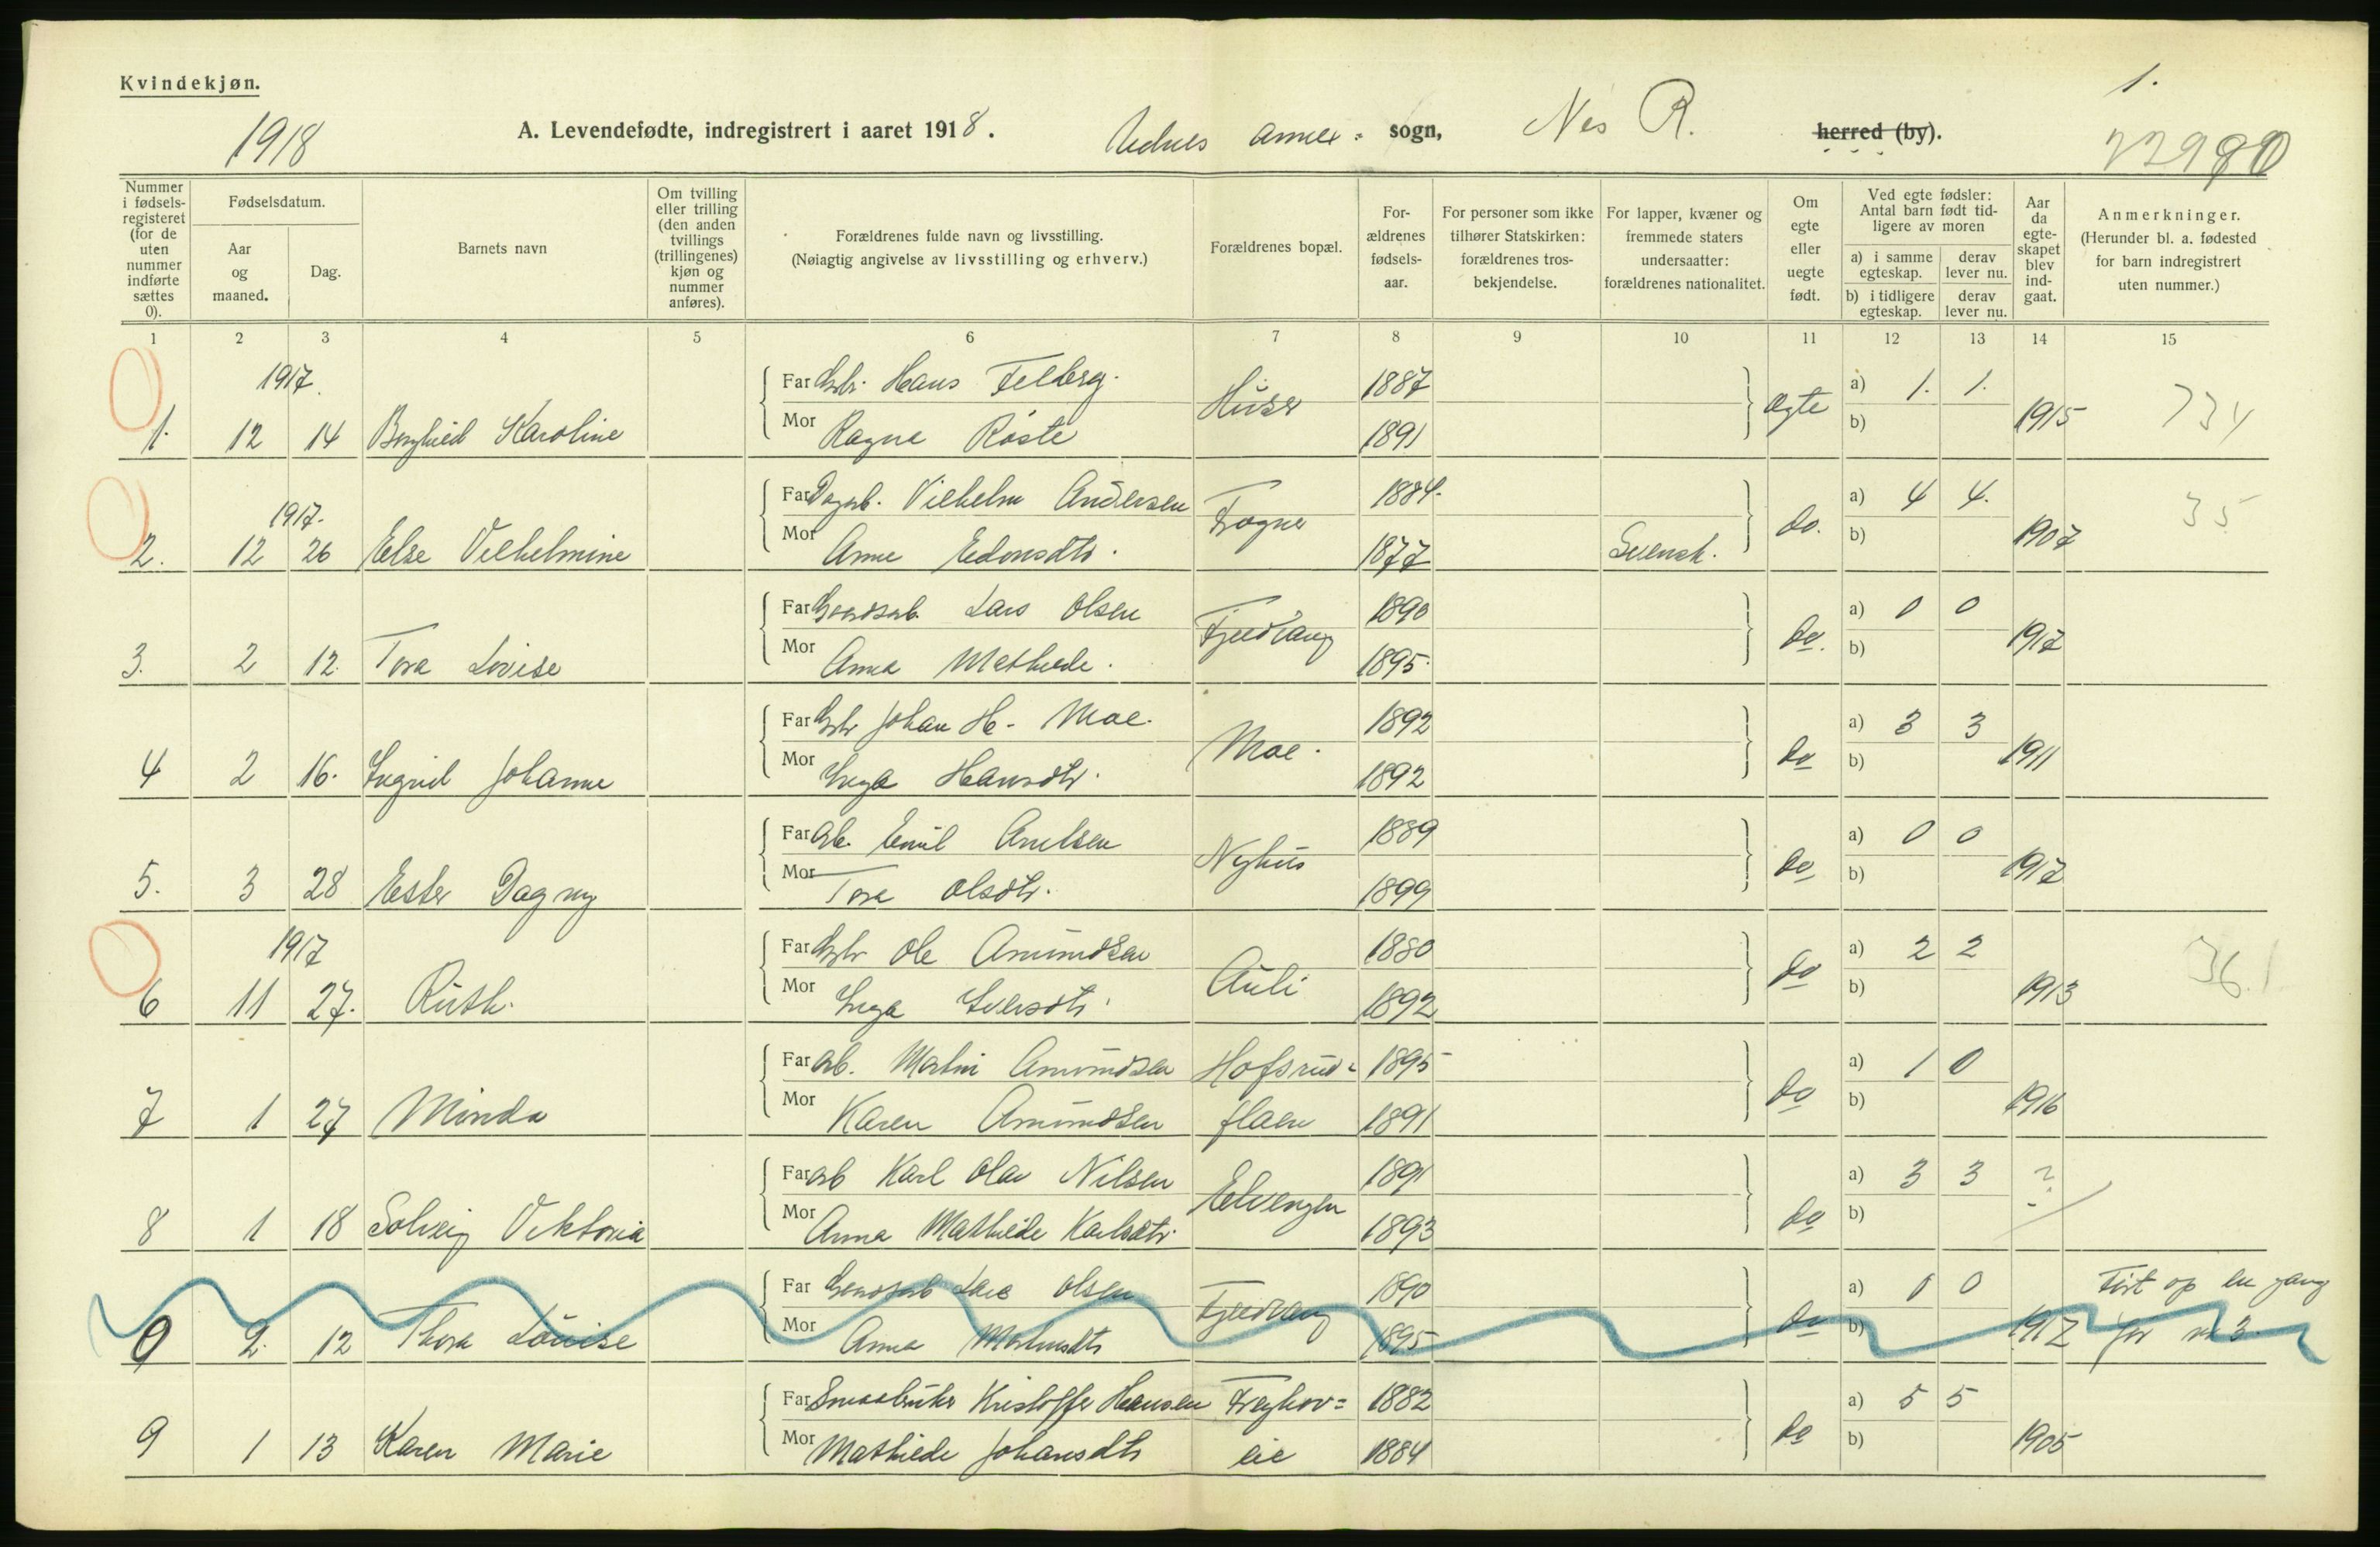 Kvindekjøn.
1.
1918
A. Levendefødte, indregistrert i aaret 1918.
Udnes annex = sogn,
Nes R.
herred (by).
22980
Nummer i fødsels-registeret (for de uten nummer indførte sættes 0).
Fødselsdatum.
Aar og maaned.
Dag.
Barnets navn
Om tvilling eller trilling (den anden tvillings (trillingenes) kjøn og nummer anføres).
Forældrenes fulde navn og livsstilling. (Nøiagtig angivelse av livsstilling og erhverv.)
Forældrenes bopæl.
For-ældrenes fødsels-aar.
For personer som ikke tilhører Statskirken: forældrenes tros-bekjendelse.
For lapper, kvæner og fremmede staters undersaatter: forældrenes nationalitet.
Om egte eller uegte født.
Ved egte fødsler: Antal barn født tid-ligere av moren
a) i samme egteskap.
derav lever nu.
b) i tidligere egteskap.
derav lever nu.
Aar da egte-skapet blev ind-gaat.
Anmerkninger. (Herunder bl. a. fødested for barn indregistrert uten nummer.)
1 2 3 4 5 6 7 8 9 10 11 12 13 14 15
1917. Far Gbr. Hans Felberg. 1887 a) 1. 1.
1. 12 14 Borghild Karoline Mor Ragna Røste Huser 1891 Ægte b) 1915 734
1917. Far Dagarb. Vilhelm Andersen 1884. a) 4 4.
2. 12 26 Else Vilhelmine Mor Anne Edonsdtr. Frogner 1877 Svensk. do. b) 1907 35
Far Lars Olsen 1890 a) 0 0
3. 2 12. Tora Lovise Mor Anna Mathilde. Fjeldvang 1895. do. b) 1917
Far Gbr Johan H. Moe. 1892 a) 3 3
4 2 16. Ingrid Johanne Mor Inga Hansdtr. Moe. 1892 do b) 1911
Far Arb. Emil Amelsen 1889 a) 0 0
5. 3 28 Ester Dagny Mor Tora Olsdtr. Nyhus 1899 do b) 1917
1917 Far Gbr Ole Amundsen 1880 a) 2 2
6 11 27. Ruth. Mor Inga Iversdtr. Auli 1892 do b) 1913 36.1
Far Arb. Martin Amundsen Hofsrud= 1895 a) 1 0
7 1 27 Minda Mor Karen Amundsen flaen 1891 do b) 1916
Far Arb Karl Olav Nilsen 1891 a) 3 3 ?
8 1 18 Solveig Viktoria Mor Anna Mathilde Karlsdtr. Elvengen 1893 do b)
Far Lars Olsen 1890 a) 0 0 Ført op en gang
9 2. 12 Thora Louise Mor Anna Fjeldvang 1895 do b) 1917 før nr 3.
Far Smaabruker Kristoffer Hansen 1882 a) 5 5
9 1 13 Karen Marie Mor Mathilde Johansdtr eie 1884 do b) 1905